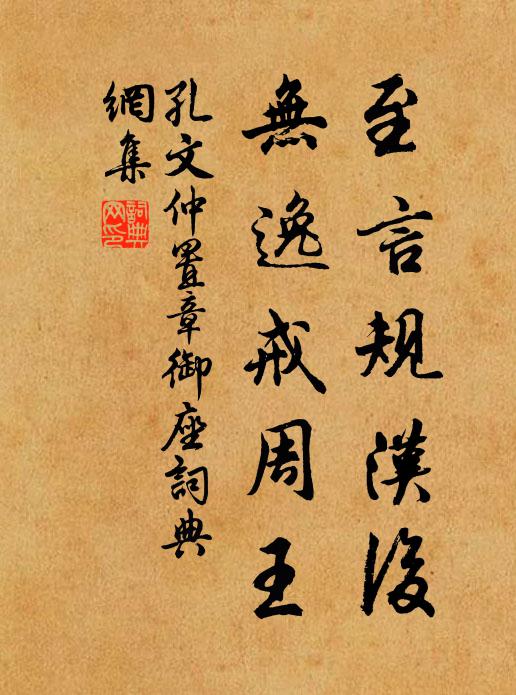 至言規漢後
無逸戒周王
孔文仲置章御座詞典
網集
詞典
网印